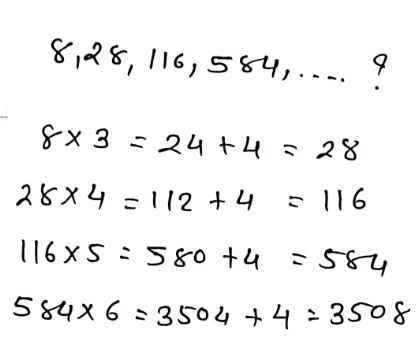 8, 28, 116, 584, ..... ?
8 x 3 = 24 + 4 = 28
28 x 4 = 112 + 4 = 116
116 x 5 = 580 + 4 = 584
584 x 6 = 3504 + 4 = 3508